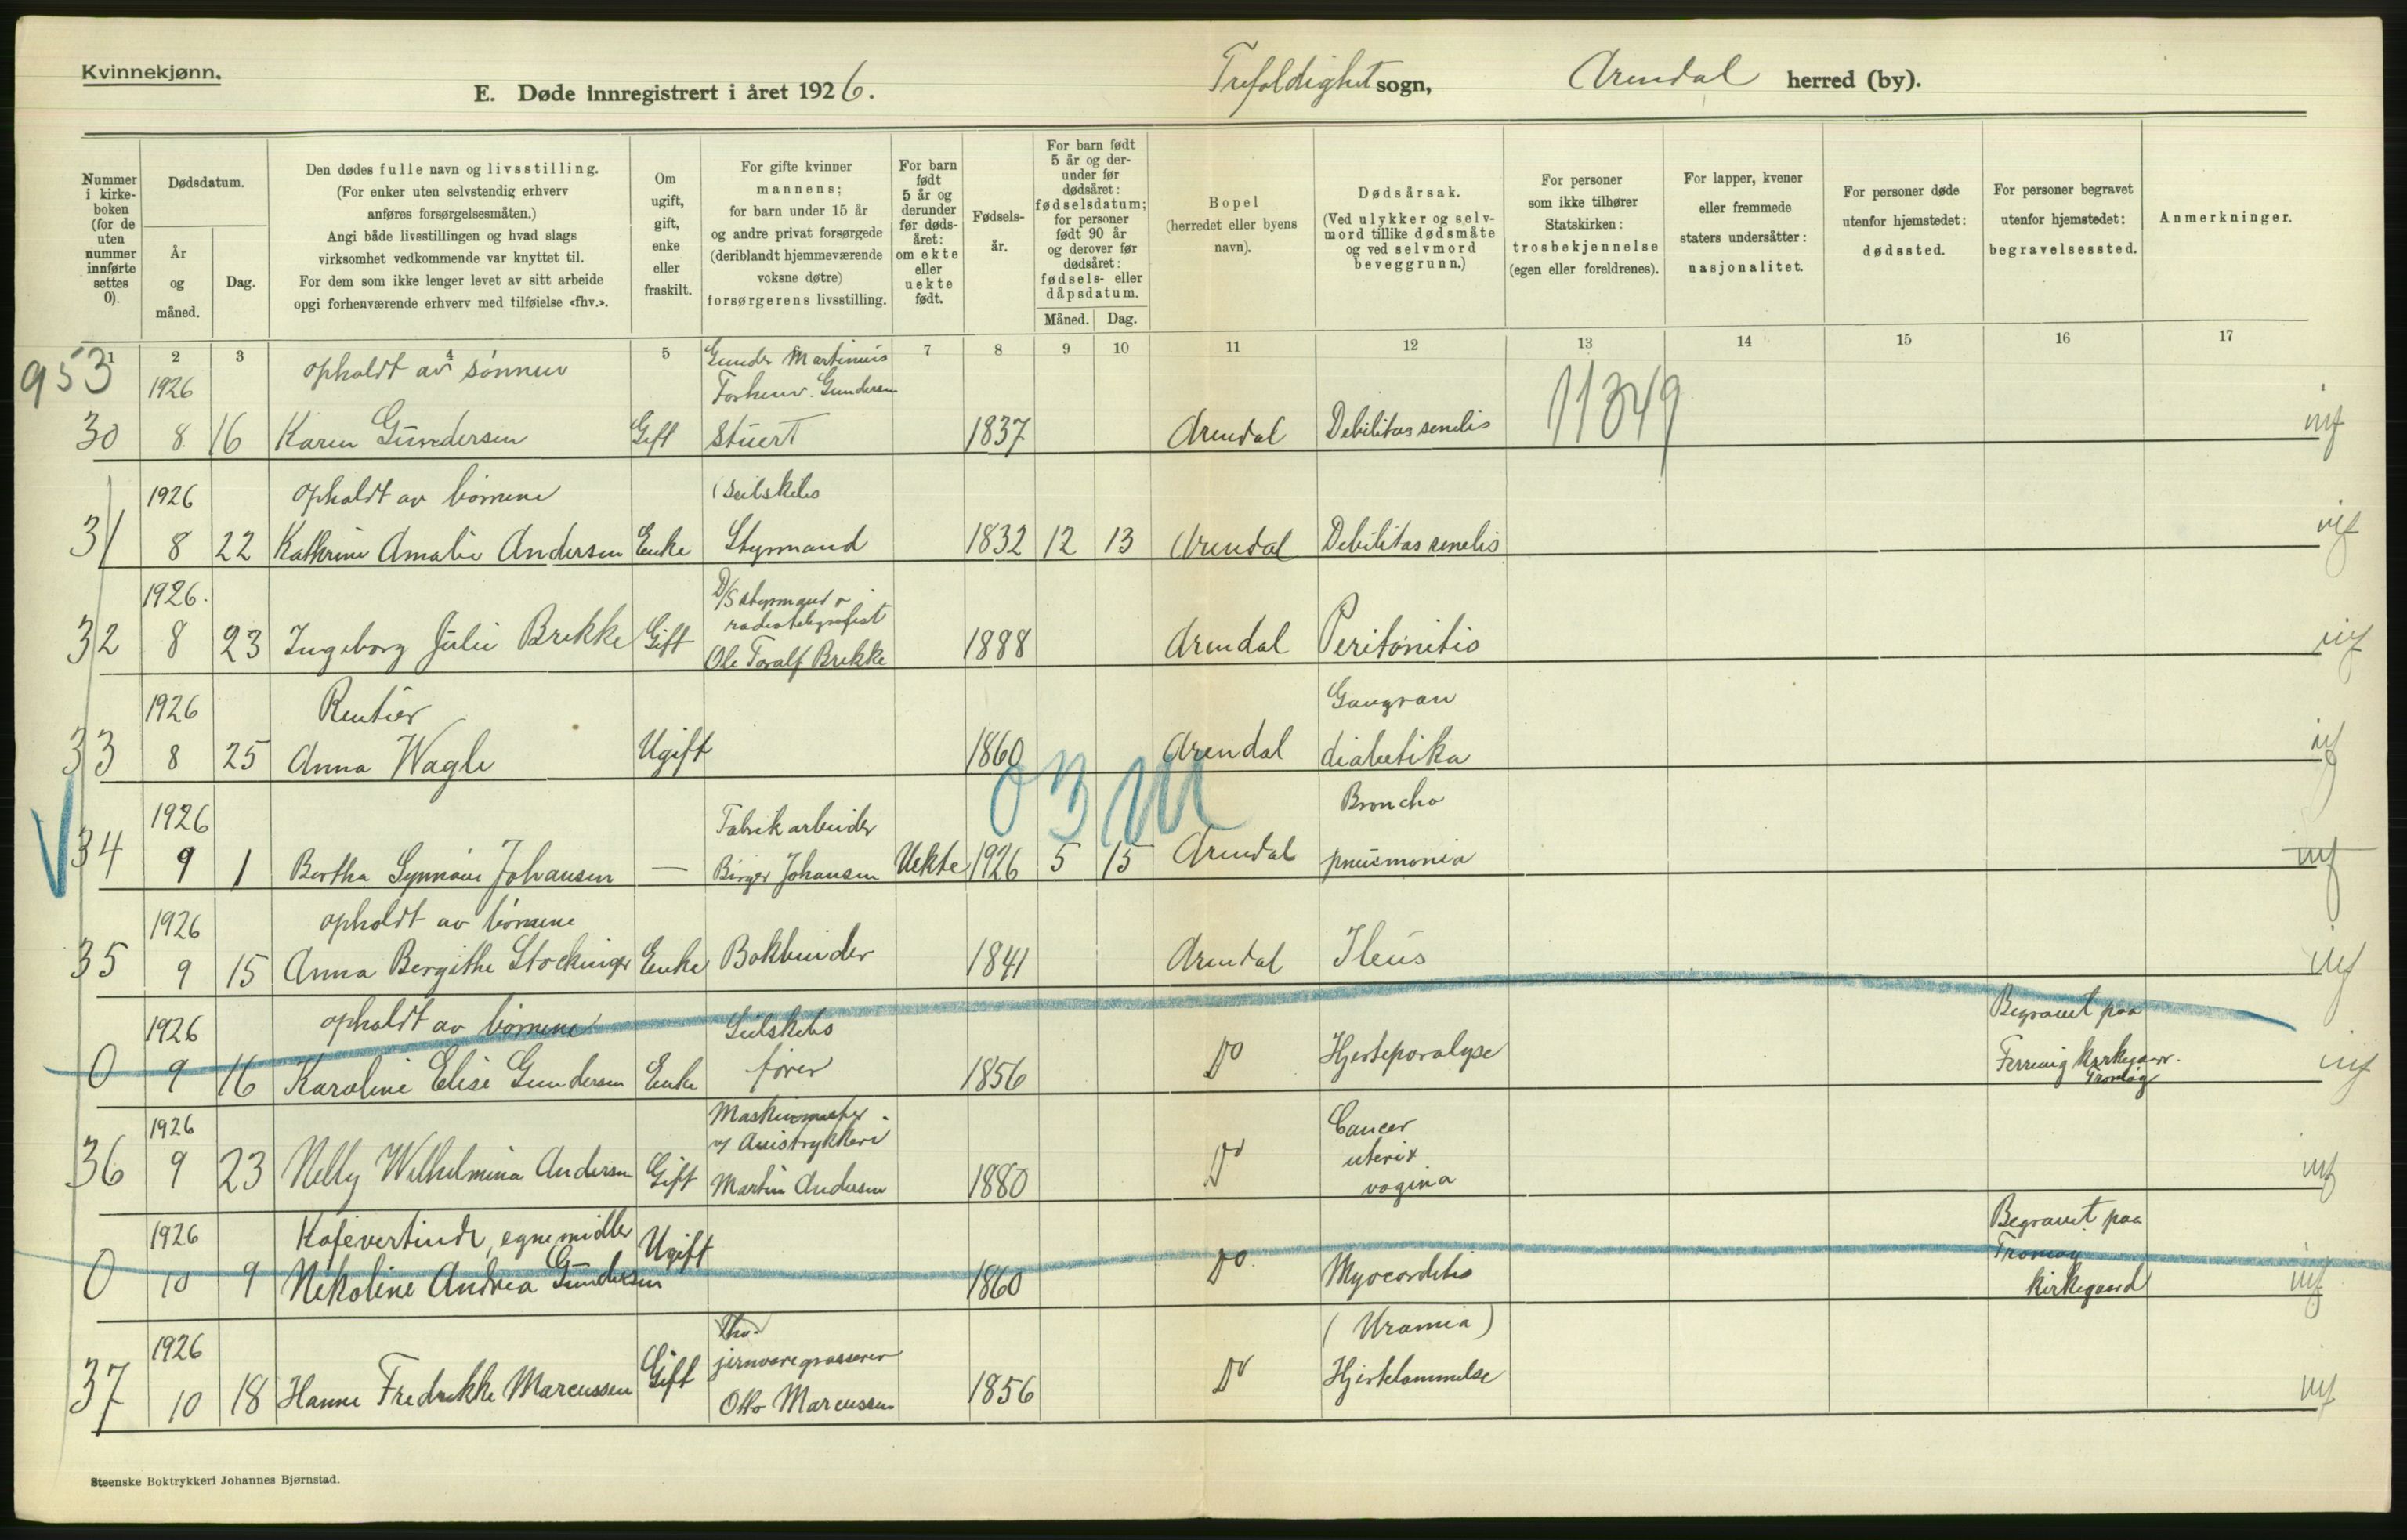 Kvinnekjønn.
E. Døde innregistrert i året 1926.
Trefoldighet sogn, Arendal herred (by).
Nummer i kirke-boken (for de uten nummer innførte settes 0).
Dødsdatum.
År og måned.
Dag.
Den dødes fulle navn og livsstilling.
(For enker uten selvstendig erhverv
anføres forsørgelsesmåten.)
Angi både livsstillingen og hvad slags
virksomhet vedkommende var knyttet til.
For dem som ikke lenger levet av sitt arbeide
opgi forhenværende erhverv med tilføielse «fhv.».
Om ugift, gift, enke eller fraskilt.
For gifte kvinner
mannens;
for barn under 15 år
og andre privat forsørgede
(deriblandt hjemmeværende
voksne døtre)
forsørgerens livsstilling.
For barn født 5 år og derunder før døds-året: om ekte eller uekte født.
Fødsels-år.
For barn født 5 år og der-under før dødsåret: fødselsdatum; for personer født 90 år og derover før dødsåret: fødsels- eller dåpsdatum.
Måned. Dag.
Bopel
(herredet eller byens
navn).
Dødsårsak.
(Ved ulykker og selv-
mord tillike dødsmåte
og ved selvmord
beveggrunn.)
For personer
som ikke tilhører
Statskirken:
trosbekjennelse
(egen eller foreldrenes).
For lapper, kvener
eller fremmede
staters undersåtter:
nasjonalitet.
For personer døde
utenfor hjemstedet:
dødssted.
For personer begravet
utenfor hjemstedet:
begravelsessted.
Anmerkninger.
1 2 3 4 5 7 8 9 10 11 12 13 14 15 16 17
953 1926 opholdt av sønnen Gunder Martinius
Forhenv. Gundersen
30 8 16 Karen Gundersen Gift Stuert 1837 Arendal Debilitas senilis 11349
1926 opholdt av børnene Seilskibs
31 8 22 Kathrine Amalie Andersen Enke Styrmand 1832 12 13 Arendal Debilitas senilis
1926. D/S styrmand o
radiotelegrafist
32 8 23 Ingeborg Julie Brekke Gift Ole Toralf Brekke 1888 Arendal Peritonitis
1926 Rentier Gangrän
33 8 25 Anna Wagle Ugift 1860 Arendal diabetika
03M
1926 Fabrikarbeider Broncho
34 9 1 Bertha Synnøve Johansen — Birger Johansen Uekte 1926 5 15 Arendal pneumonia
1926 opholdt av børnene
35 9 15 Anna Bergithe Stockinger Enke Bokbinder 1841 Arendal Ileus
1926 opholdt av børnene Seilskibs Begravet paa
0 9 16 Karoline Elise Gundersen Enke fører 1856 Do Hjerteparalyse
1926 Maskinmester
v/ Avistrykkeri Cancer
uteri x
36 9 23 Nelly Wilhelmina Andersen Gift Martin Andersen 1880 Do vagina
1926 Kafévertinde, egne midler Begravet paa
Tromøy
0 10 9 Nikoline Andrea Gundersen Ugift 1860 Do Myocarditis kirkegaard
1926 Fhv. (Uræmia)
jernvaregrosserer
37 10 18 Hanne Fredrikke Marcussen Gift Otto Marcussen 1856 Do Hjertelammelse
Steenske Boktrykkeri Johannes Bjørnstad.